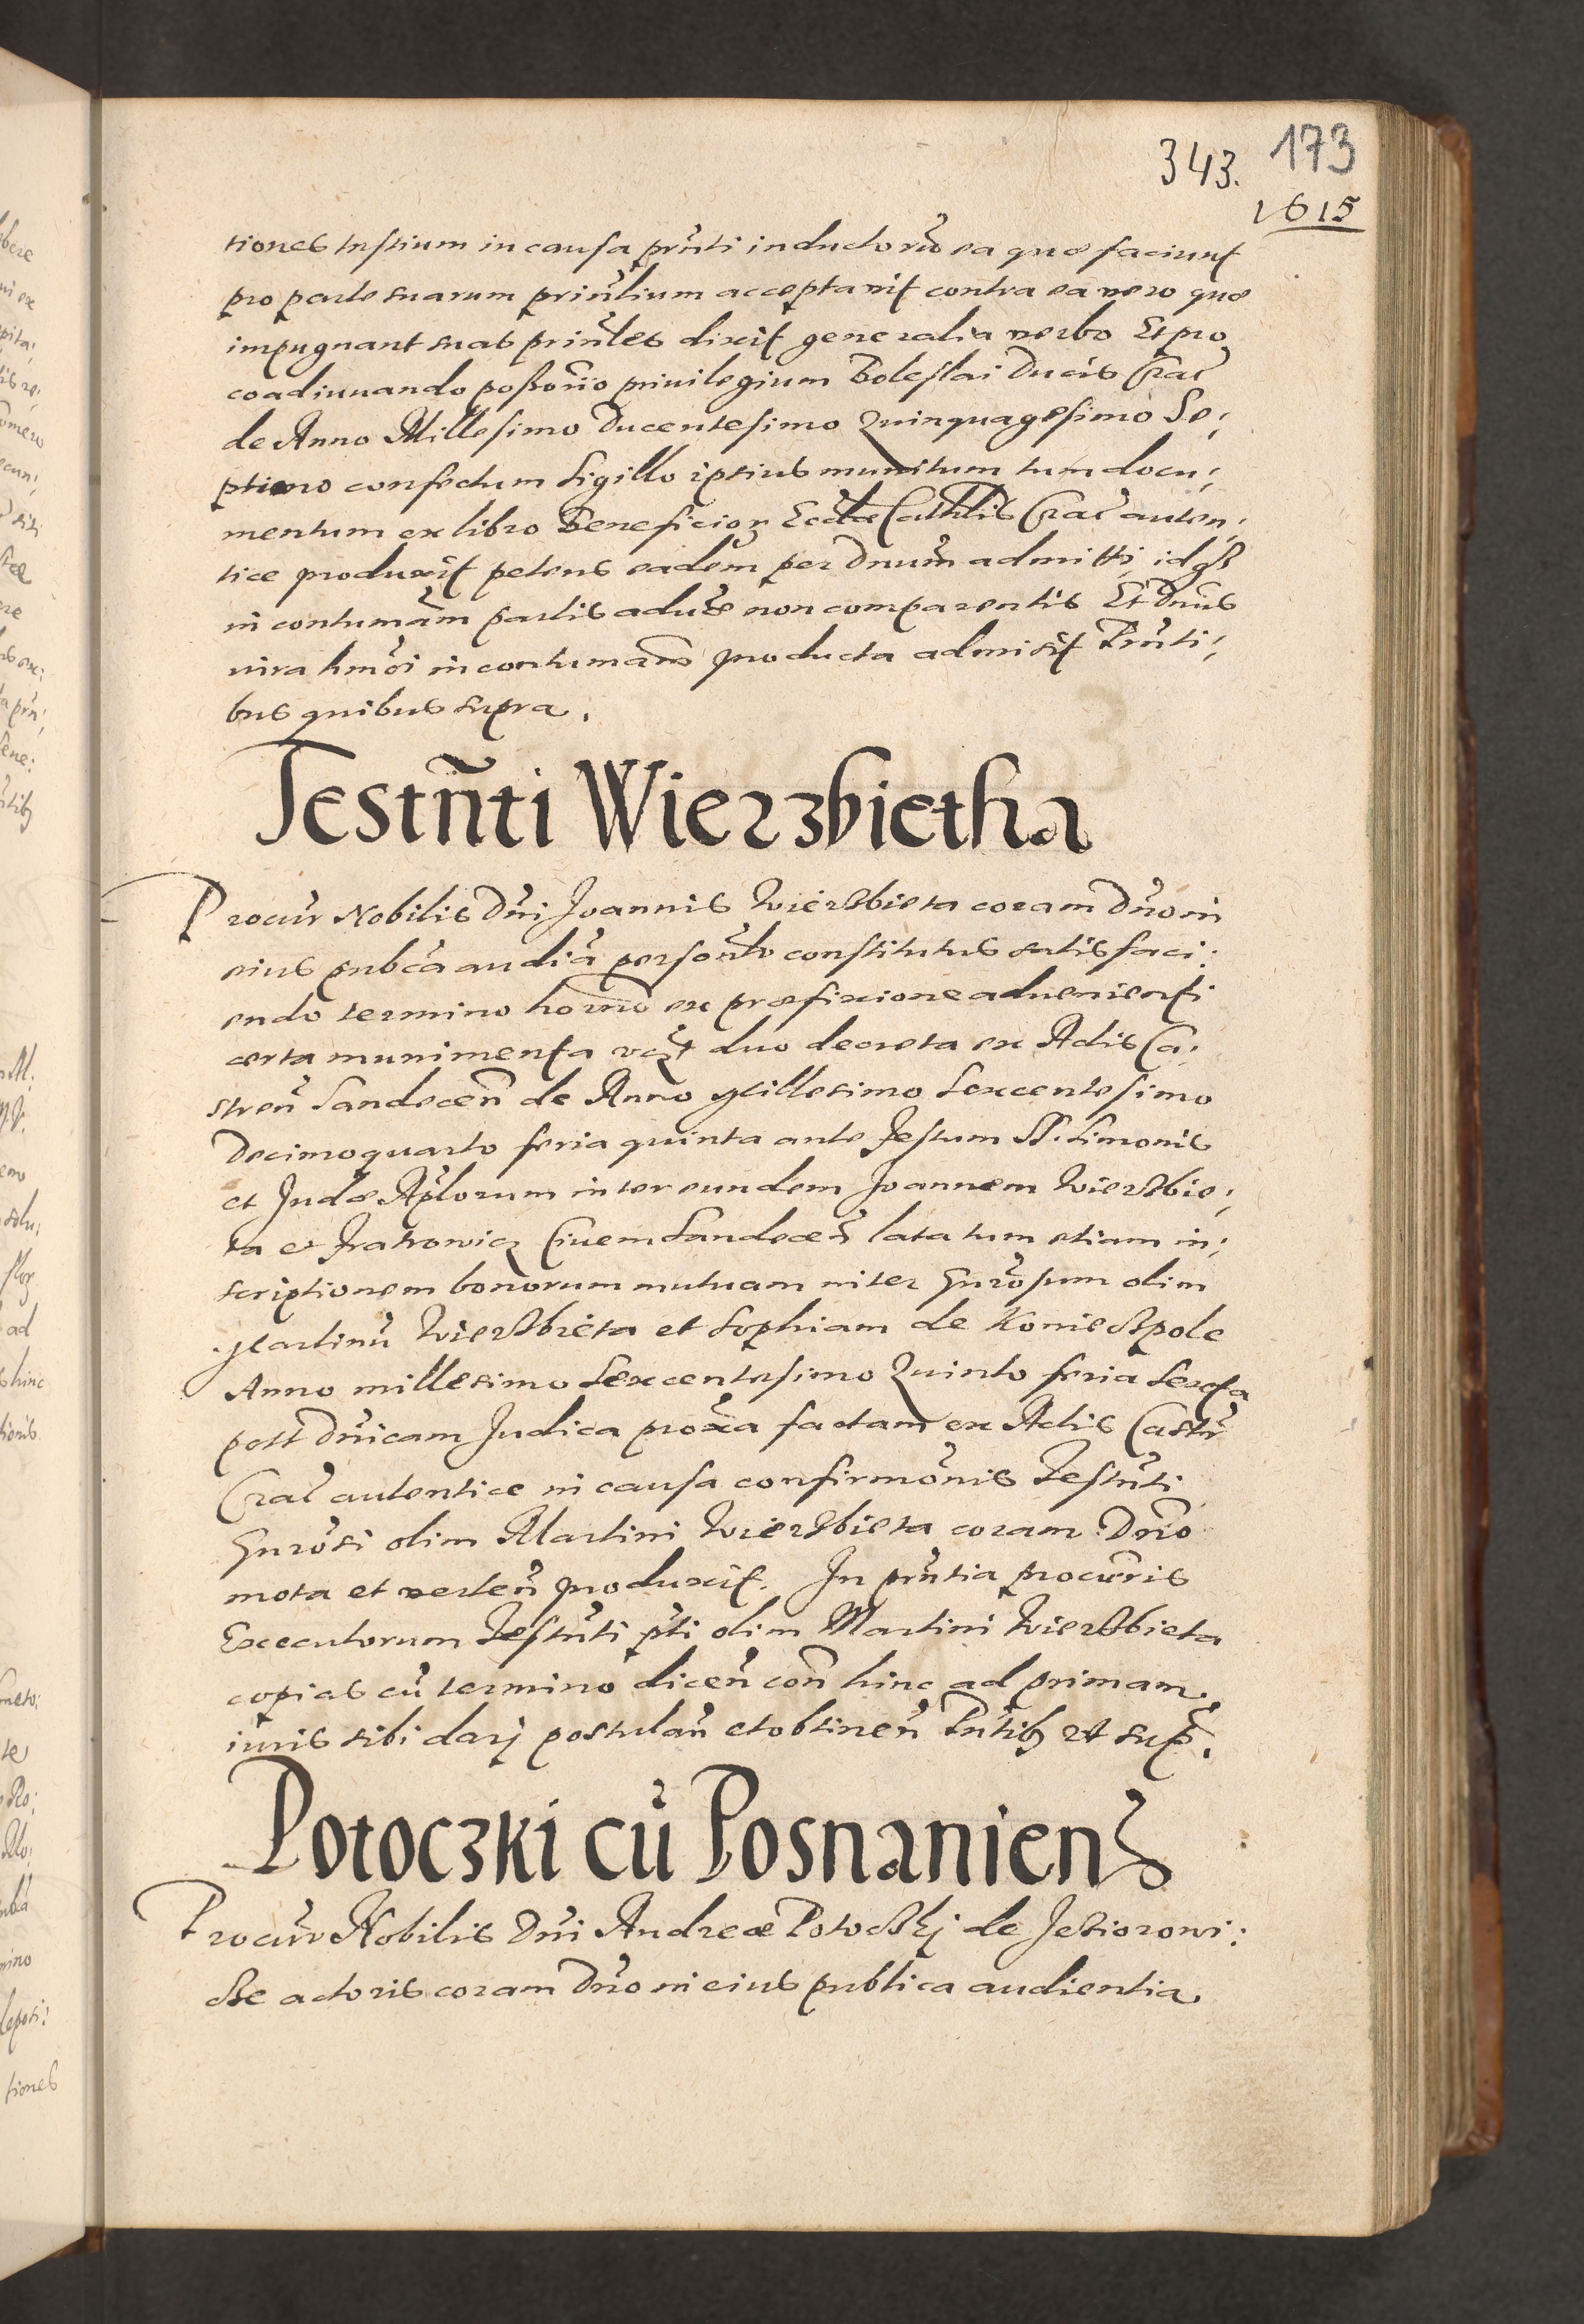 343. 173
1615
tiones testium in causa prñti inductorũ ea quæ faciunt
pro parte suarum prinũlium acceptavit contra ea vero quæ
impugnant suas prinũles dixit generalia verbo Et pro
coadiuuando possorio priuilegium Boleslai Ducis Crac̃
de Anno Millesimo Ducentesimo Quinquagesimo Se,
ptimo confectum Sigillo ipsius munitum tum docu,
mentum ex libro Beneficior Ecclæ Cathlis Crac̃ auten,
tice produxit petens eadem per Dnum admitti, idqꝫ
in contumãm partis aduersæ non comparentis Et Dnus
iura hmõi in contumam producta admisit Prñti,
bus quibus supra.
Testñti Wierzbietha
Procur̃ Nobilis Dñi Joannis Wierzbieta coram Dño in
eius pubca audia personlr constitutus satisfaci:
endo termino horno ex præfixione aduenienti
certa munimenta vczt duo decreta ex Actis Ca,
streñ Sandeceñ de Anno Millesimo Sexcentesimo
Decimoquarto feria quinta ante Festum SS. Simonis
et Judæ Aplorum inter eundem Joannem Wierzbie,
ta et Fratrowicz Ciuem Sandeceñ lata tum etiam in,
scriptionem bonorum mutuam inter Gnrosum olim
Martinũ Wierzbieta et Sophiam de Konieczpole
Anno millesimo Sexcentesimo Quinto feria Sexta
post Dñicam Judica proxa factam ex Actis Castr̃
Crac̃ autentice in causa confirmõnis Testñti
Gnrosi olim Martini Wierzbieta coram Dño
mota et verteñ produxit. In prñtia procuris
Executorum Testñti pti olim Martini Wierzbieta
copias cũ termino diceñ coñ hinc ad primam
iuris sibi darj postulañ et obtineñ Prñtibꝫ vt sup̃.
Potoczki cũ Posnanieñ
Procur̃ Nobilis Dñi Andreæ Potoczkj de Jeziorowi:
cze actoris coram Dño in eius publica audientia